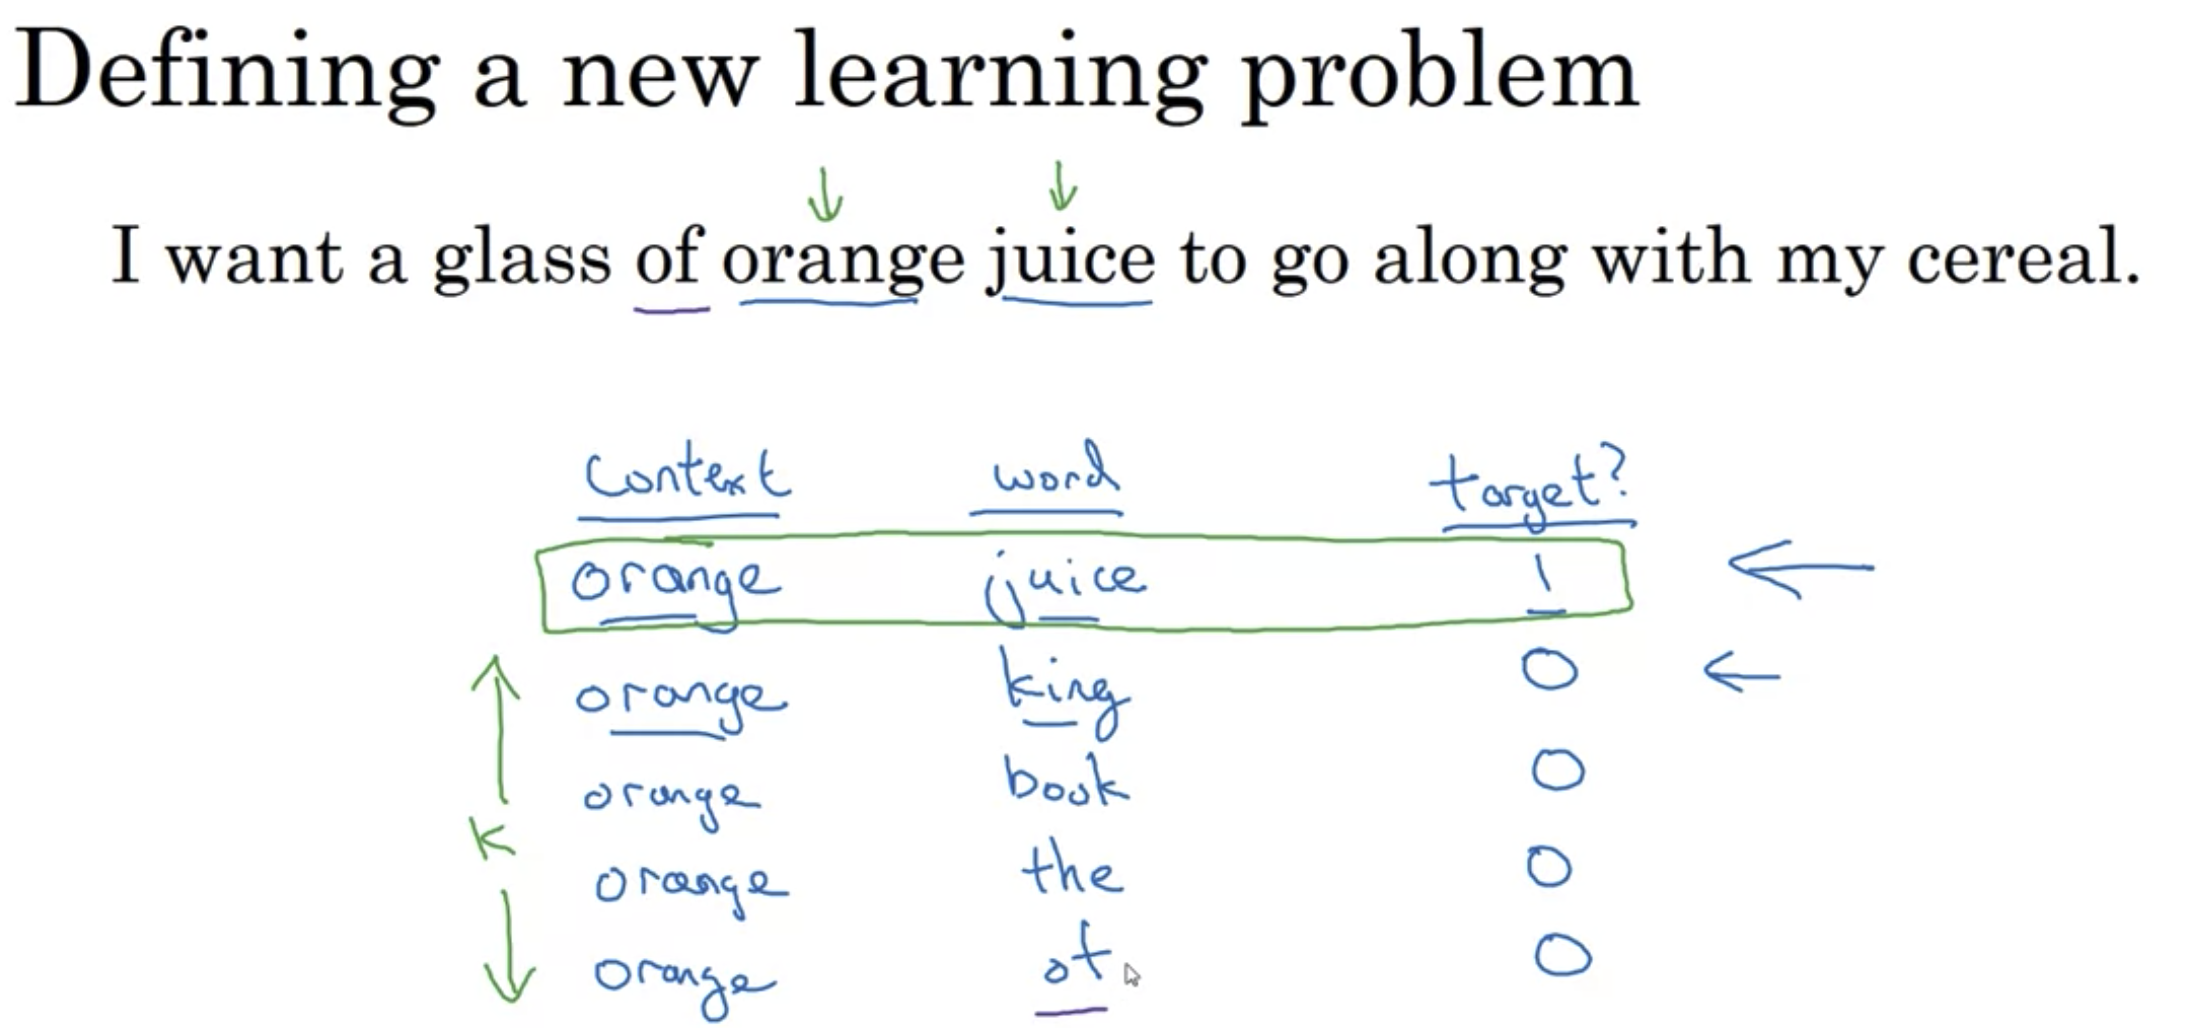 Defining a new learning problem
I want a glass of orange juice to go along with my cereal.
Context word target?
orange juice 1
orange king 0
orange book 0
K
orange the 0
orange of 0